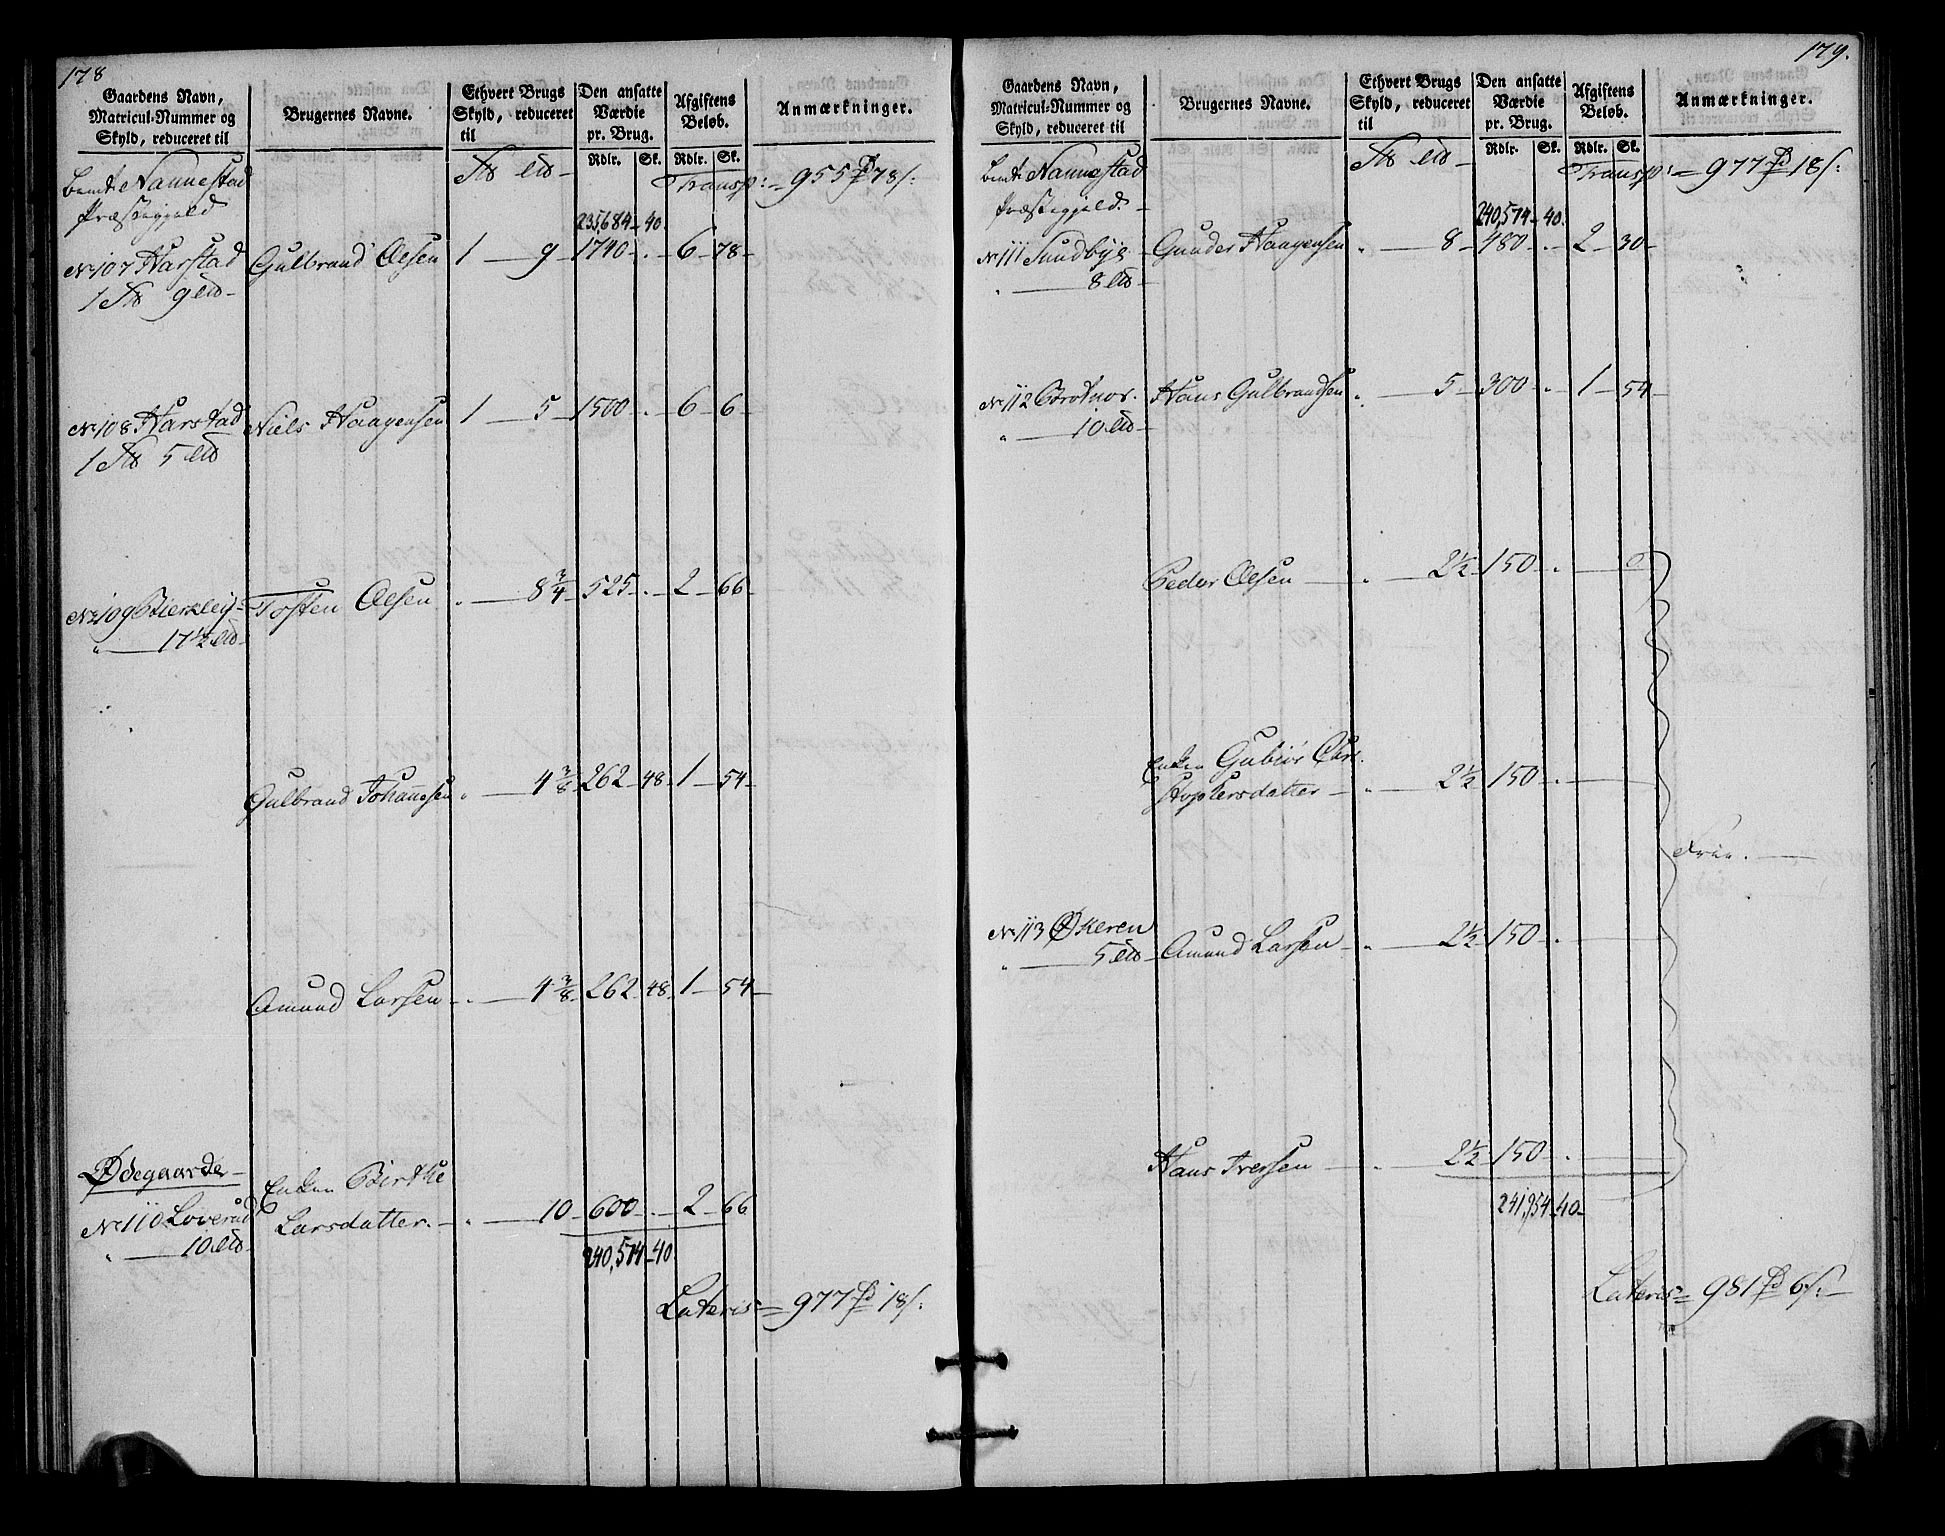 178
Gaardens Navn, Matricul-Nummer og Skyld, reduceret til
Brugernes Navne.
Ethvert Brugs Skyld, reduceret til
Den ansatte Værdie pr. Brug.
Afgiftens Beløb.
Anmærkninger.
Rdlr. Sk. Rdlr. Sk.
bemt Nannestad
Præstegjeld
Transp: = 955 78/:
235,684 - 40.
No 107 Harstad Gulbrand Olsen 1 9 - 1740 - . 6 - 78 -
1 9
No 108 Harstad Niels Haagensen 1 5 - 1500 - . 6 - 6 -
1 5
No 109 Bierkeli Tosten Olsen " 8 3/4 - 525 - . 2 - 66 -
" 17 1/2
Gulbrand Johannesen " 4 3/8 - 262 - 48. 1 - 54 -
Amund Larsen " 4 3/8 - 262 - 48. 1 - 54 -
Ødegaarde
No 110 Loverud Enken Birthe
" 10 Larsdatter. " 10 - 600 - . 2 - 66
240,574 - 40
Lateris = 977 18/:
179.
Gaardens Navn, Matricul-Nummer og Skyld, reduceret til
Brugernes Navne.
Ethvert Brugs Skyld, reduceret til
Den ansatte Værdie pr. Brug.
Afgiftens Beløb.
Anmærkninger.
Rdlr. Sk. Rdlr. Sk.
bemt Nannestad
Præstegjeld.
Transp: = 977 18/:
240,574 - 40.
No 111 Sundbye Gunder Haagensen " 8 - 480 - . 2 - 30 -
" 8
No 112 Hans Gulbrandsen " 5 - 300 - . 1 - 54 -
" 10
Peder Olsen " 2 1/2 - 150 -
Enken Chri-
stophersdatter " 2 1/2 - 150 -
Frie.
No 113 Økeren
" 5 Amund Larsen " 2 1/2 - 150 -
Hans Iversen " 2 1/2 - 150 -
241,954 - 40 -
Lateris = 981 6/: